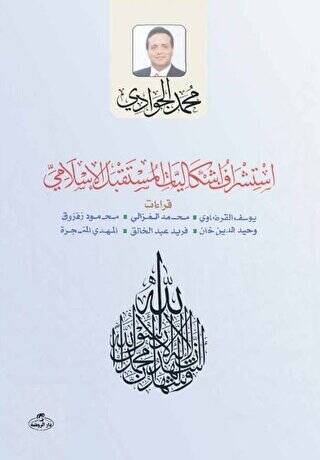 محمد الجوادي
استشراف إشكاليات المستقبل الإسلامي
قراءات
يوسف القرضاوي • محمد الغزالي • محمود زقزوق
وحيد الدين خان • فريد عبد الخالق • المهدي المنجرة
دار الروضة